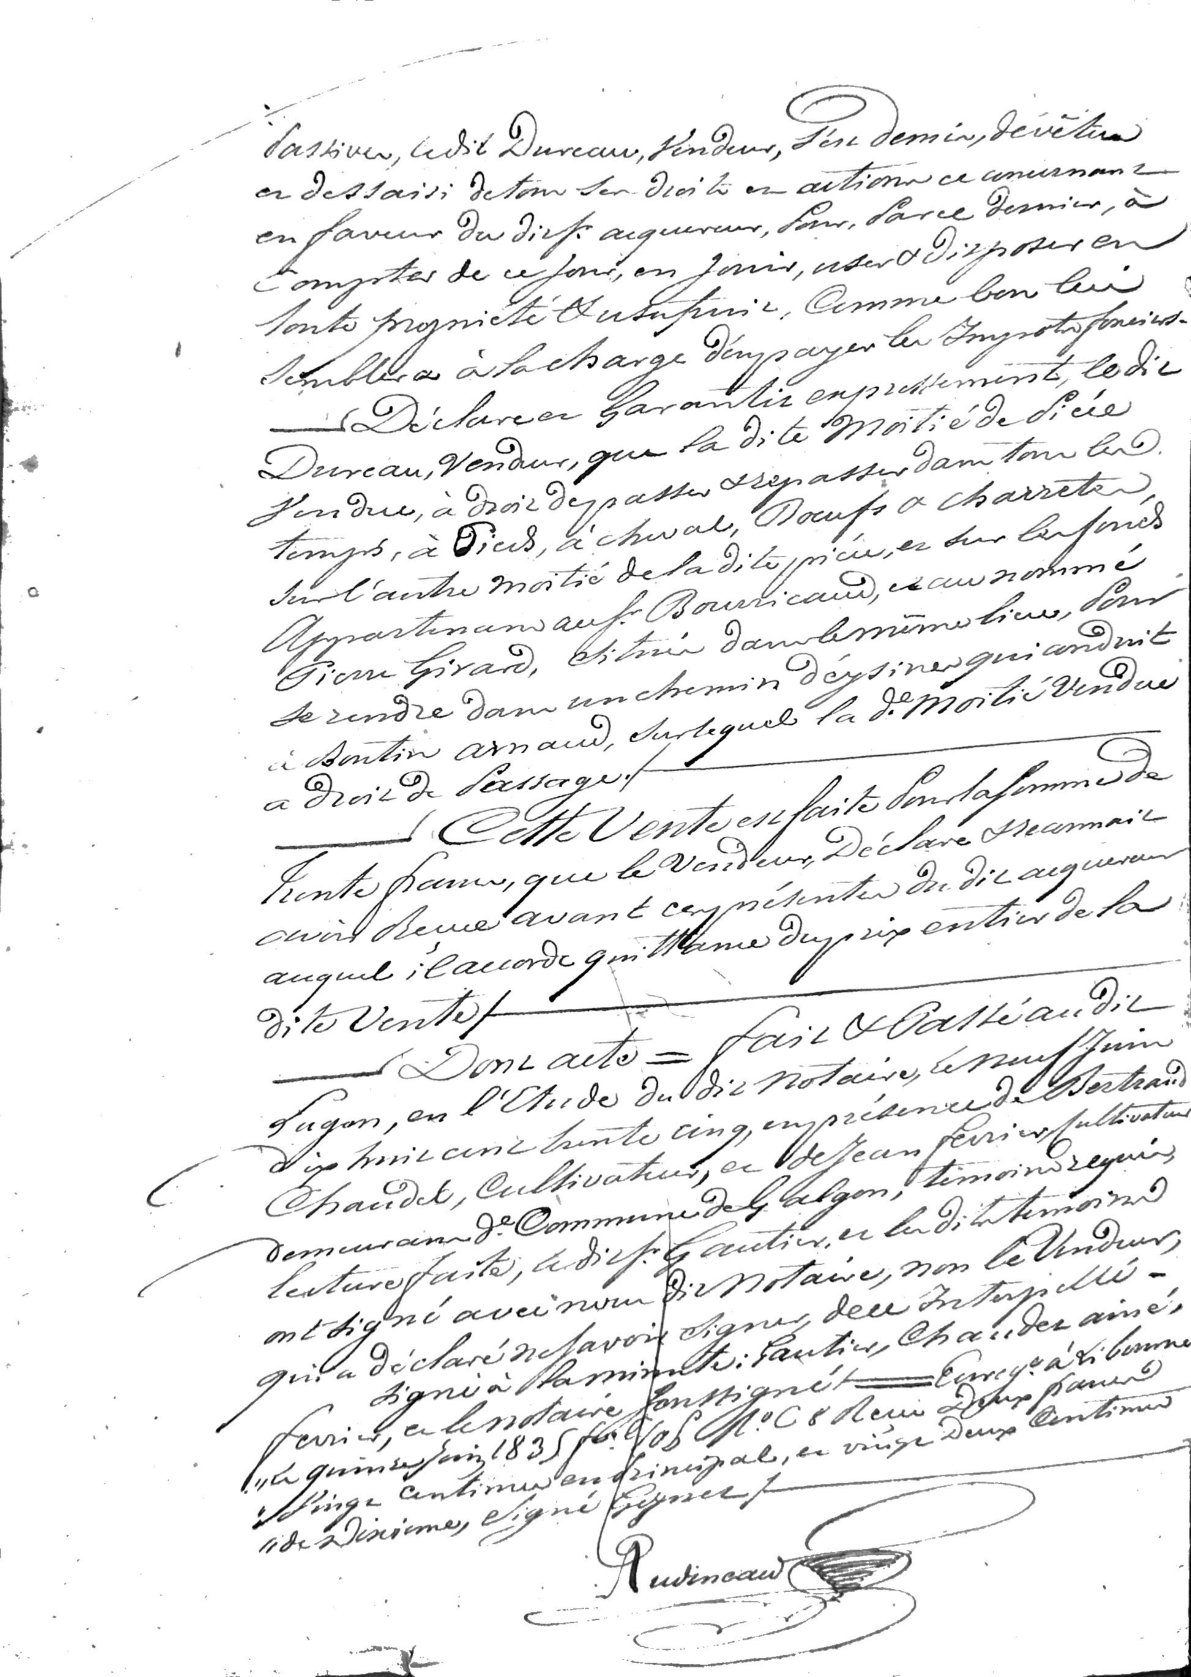 Passives, ledit Dureau, Vendeur, s'est demis, dévêtu
et dessaisi de tous ses droits et actions ce concernant
en faveur du dit sr. acquereur, Pour, Par ce dernier, à
Compter de ce jour, en jouir, user & disposer en
toute propriété & usufruit, Comme bon lui
semblera à la charge d'en payer les Impots fonciers.
Déclare et Garantit expressément, le dit
Dureau, Vendeur, que la dite Moitié de Pièce
Vendue, à droit de passer & repasser dans tous les
temps, à Pieds, à cheval, Bœufs & charrettes,
sur l'autre moitié de la dite pièce, et sur les fonds
Appartenans au sr. Bourricaud, et au nommé
Pierre Girard, situés dans le même lieu, Pour
se rendre dans un chemin d'éysines qui conduit
à Boutin arnaud, sur lequel la de. Moitié Vendue
a droit de Passage./
Cette Vente est faite Pour la somme de
trente francs, que le Vendeur, Déclare & reconnait
avoir Recue avant ces présentes du dit acquereur
auquel il accorde quittance du prix entier de la
dite Vente/
Dont acte = fait & Passé au dit
Lugon, en l'Etude du dit Notaire, Le neuf Juin
dix huit cent trente cinq, en présence de Bertrand
Chaudet, Cultivateur, et de Jean ferrier, Cultivateur
demeurans de. Commune de Galgon, témoins requis,
lecture faite, le dit sr. Gautier, et les dits témoins
ont signé avec nous dit Notaire, non le Vendeur,
qui a déclaré ne savoir signer, de ce Interpellé -
signé à la minute: Gautier, Chaudet ainé,
ferrier, et le notaire soussigné/ == Enregé. à Libourne
"Le quinze Juin 1835 fo. Ro. C 8 Recu Deux francs
"Vingt centimes en principal, et vingt deux Centimes
"de Dixieme, signé
Audineaud